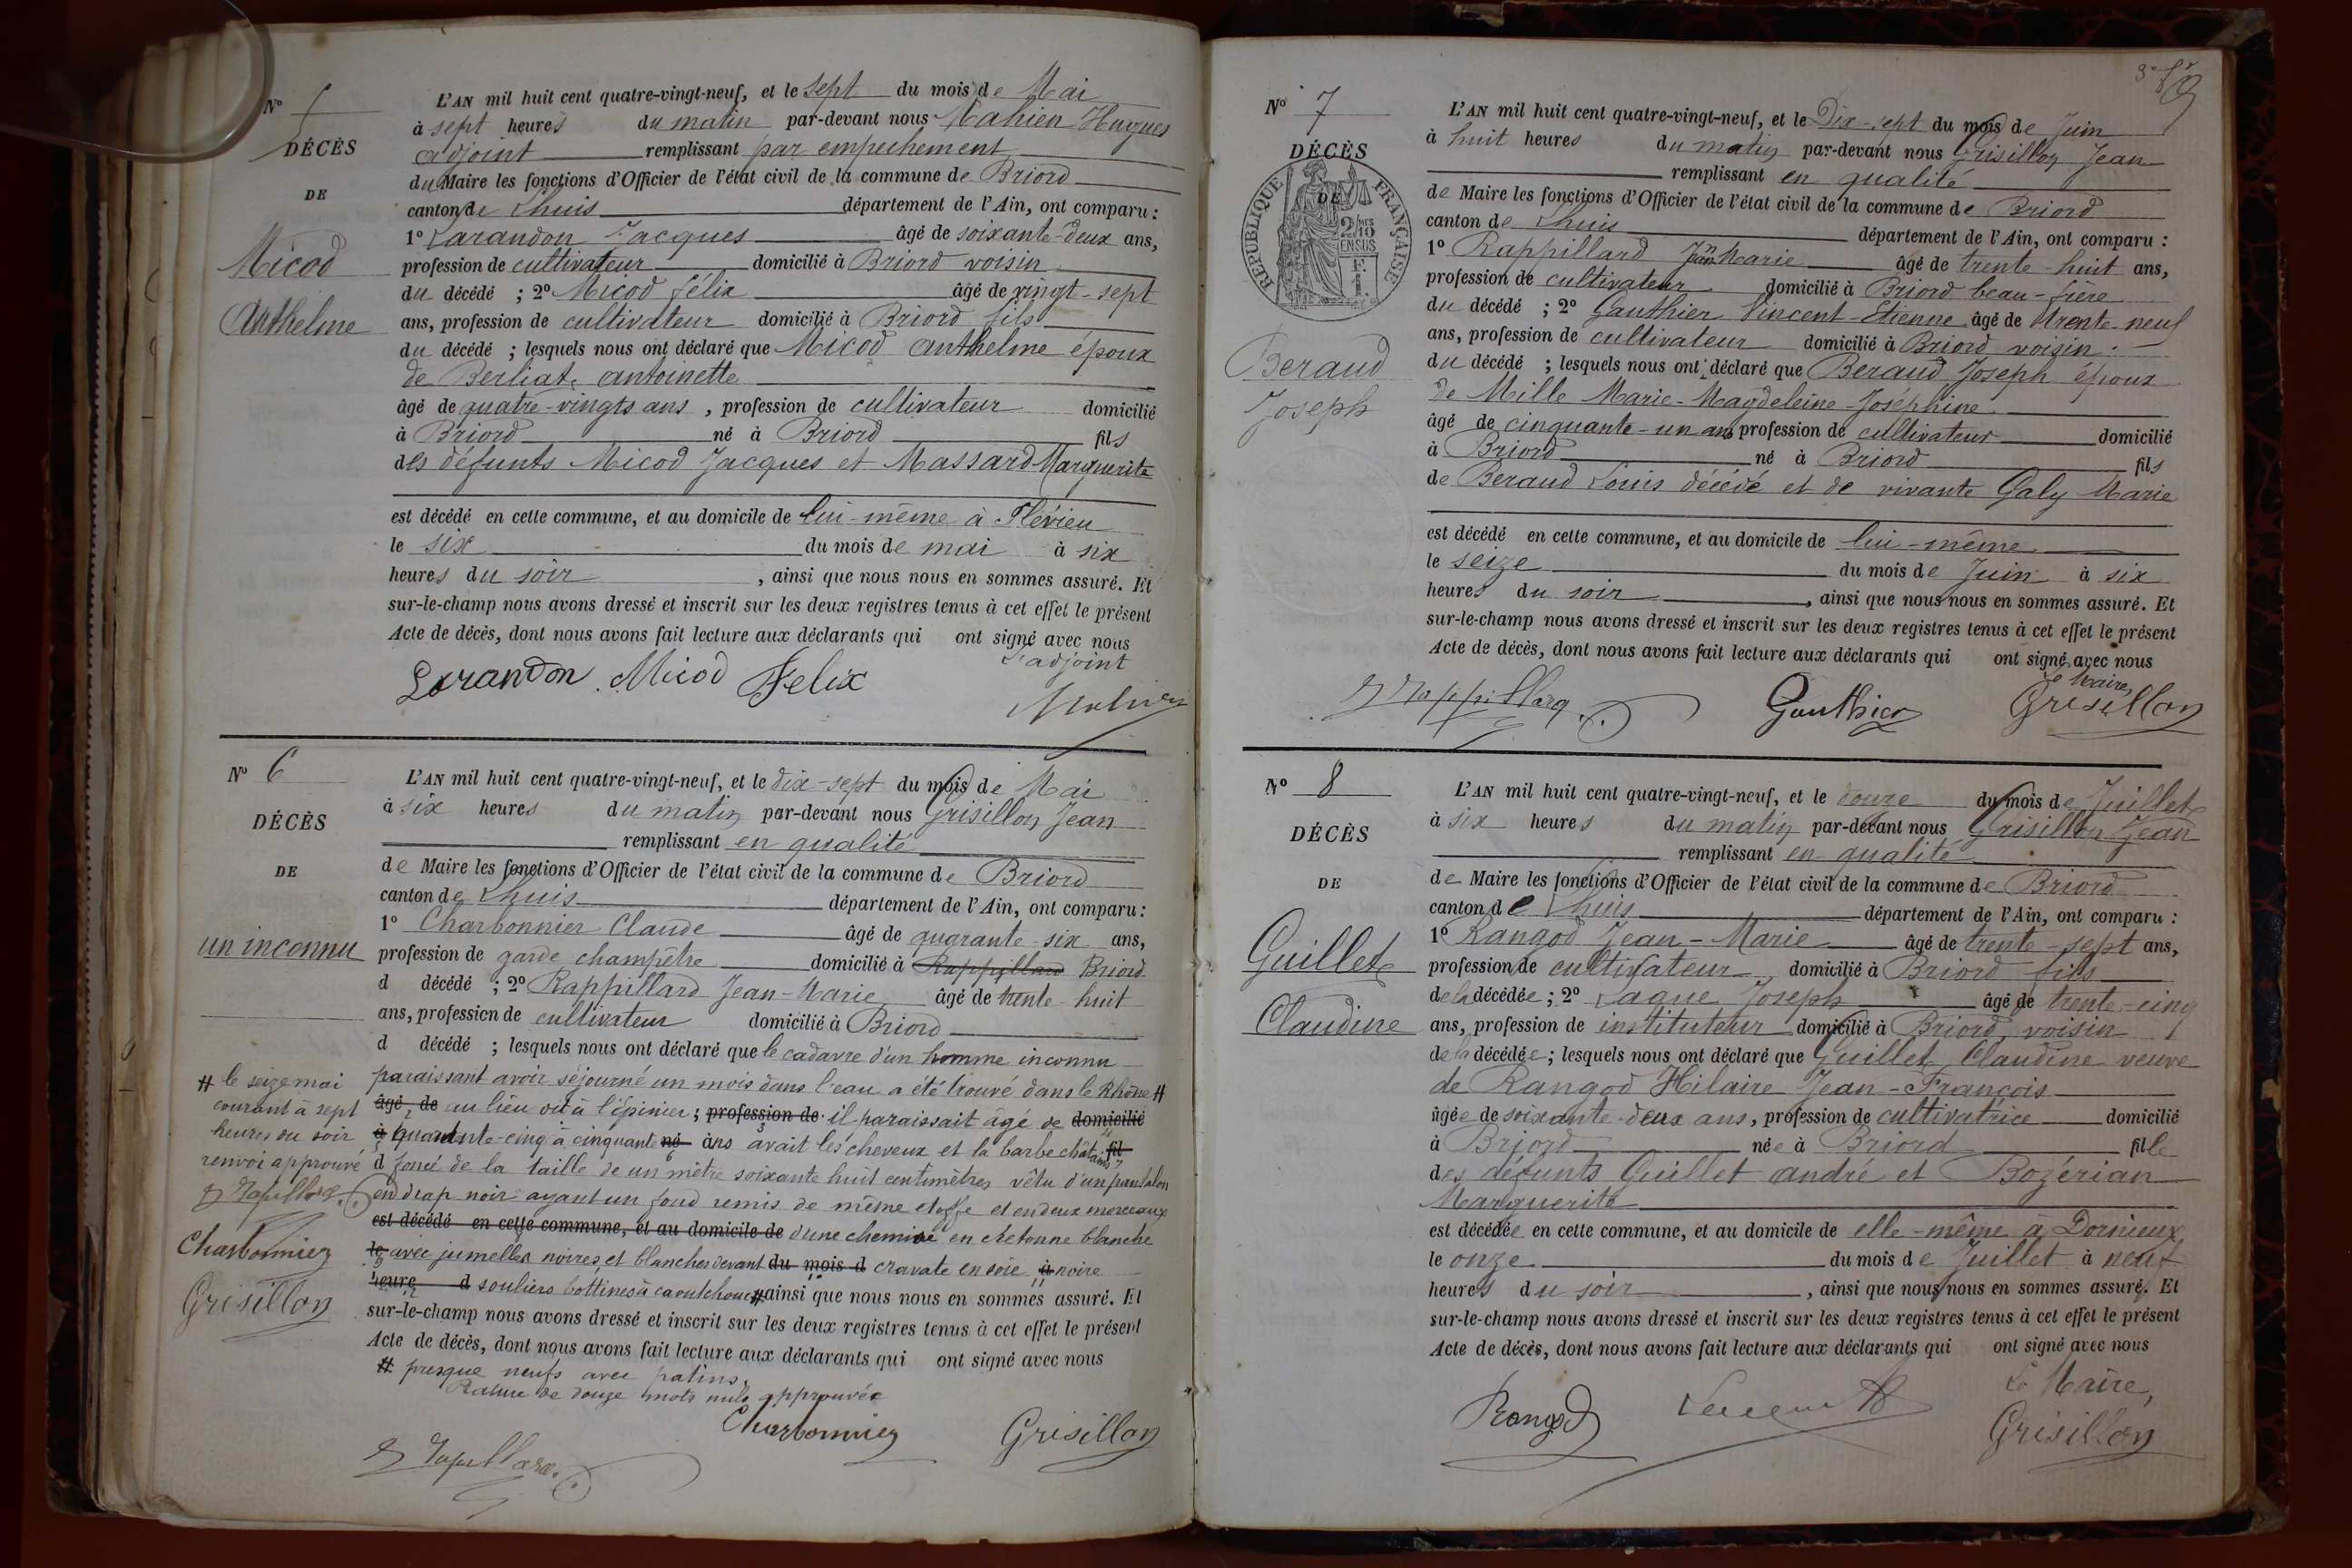 N° 5
DÉCÈS
DE
Micod
Anthelme
L'AN mil huit cent quatre-vingt-neuf, et le sept du mois de Mai
à sept heures du matin par-devant nous Mahien Hugues
adjoint remplissant par empêchement
du Maire les fonctions d'Officier de l'état civil de la commune de Briord
canton de Lhuis département de l'Ain, ont comparu :
1° Larandon Jacques âgé de soixante-deux ans,
profession de cultivateur domicilié à Briord voisin
du décédé ; 2° Micod félix âgé de vingt-sept
ans, profession de cultivateur domicilié à Briord fils
du décédé ; lesquels nous ont déclaré que Micod anthelme époux
de Berliat antoinette
âgé de quatre-vingts ans, profession de cultivateur domicilié
à Briord né à Briord fils
des défunts Micod Jacques et Massard Marguerite
est décédé en cette commune, et au domicile de lui-même à Flévieu
le six du mois de mai à six
heures du soir, ainsi que nous nous en sommes assuré. Et
sur-le-champ nous avons dressé et inscrit sur les deux registres tenus à cet effet le présent
Acte de décès, dont nous avons fait lecture aux déclarants qui ont signé avec nous
L'adjoint
Larandon Micod Felix
N° 6
DÉCÈS
DE
un inconnu
L'AN mil huit cent quatre-vingt-neuf, et le dix-sept du mois de Mai
à six heures du matin par-devant nous Grisillon Jean
remplissant en qualité
de Maire les fonctions d'Officier de l'état civil de la commune de Briord
canton de Lhuis département de l'Ain, ont comparu :
1° Charbonnier Claude âgé de quarante-six ans,
profession de garde champêtre domicilié à Rappillard Briord
d décédé ; 2° Rappillard Jean-Marie âgé de trente-huit
ans, profession de cultivateur domicilié à Briord
d décédé ; lesquels nous ont déclaré que le cadavre d'un homme inconnu
paraissant avoir séjourné un mois dans l'eau a été trouvé dans le Rhône #
âgé de au lieu dit à l'épinier ; profession de il paraissait âgé de domicilié
à quarante-cinq à cinquante né ans avait les cheveux et la barbe châtains fil
d foncé de la taille de un mètre soixante huit centimètres vêtu d'un pantalon
en drap noir ayant un fond remis de même etoffe et en deux morceaux
est décédé en cette commune, et au domicile de d'une chemise en cretonne blanche
le avec jumelles noires et blanches devant du mois d cravate en soie à noire
heure d souliers bottines à caoutchouc # ainsi que nous nous en sommes assuré. Et
sur-le-champ nous avons dressé et inscrit sur les deux registres tenus à cet effet le présent
Acte de décès, dont nous avons fait lecture aux déclarants qui ont signé avec nous
# presque neufs avec patins.
Rature de douze mots nuls approuvée
Charbonnier Grisillon
# le seize mai
courant à sept
heures du soir
renvoi approuvé
Charbonnier
Grisillon
N° 7
DÉCÈS
DE
RÉPUBLIQUE FRANÇAISE
2/10MES
EN SUS
Beraud
Joseph
L'AN mil huit cent quatre-vingt-neuf, et le Dix-sept du mois de Juin
à huit heures du matin par-devant nous Grisillon Jean
remplissant en qualité
de Maire les fonctions d'Officier de l'état civil de la commune de Briord
canton de Lhuis département de l'Ain, ont comparu :
1° Rappillard Jean Marie âgé de trente-huit ans,
profession de cultivateur domicilié à Briord beau-frère
du décédé ; 2° Gauthier Vincent-Etienne âgé de trente-neuf
ans, profession de cultivateur domicilié à Briord voisin
du décédé ; lesquels nous ont déclaré que Beraud Joseph époux
de Mille Marie-Magdeleine-Joséphine
âgé de cinquante-un ans profession de cultivateur domicilié
à Briord né à Briord fils
de Beraud Louis décédé et de vivante Galy Marie
est décédé en cette commune, et au domicile de lui-même
le seize du mois de Juin à six
heures du soir, ainsi que nous nous en sommes assuré. Et
sur-le-champ nous avons dressé et inscrit sur les deux registres tenus à cet effet le présent
Acte de décès, dont nous avons fait lecture aux déclarants qui ont signé avec nous
Le Maire,
Gauthier Grisillon
N° 8
DÉCÈS
DE
Guillet
Claudine
L'AN mil huit cent quatre-vingt-neuf, et le douze du mois de Juillet
à six heures du matin par-devant nous Grisillon Jean
remplissant en qualité
de Maire les fonctions d'Officier de l'état civil de la commune de Briord
canton de Lhuis département de l'Ain, ont comparu :
1° Rangod Jean-Marie âgé de trente-sept ans,
profession de cultivateur domicilié à Briord fils
de la décédée ; 2° Laque Joseph âgé de trente-cinq
ans, profession de instituteur domicilié à Briord, voisin
de la décédée ; lesquels nous ont déclaré que Guillet Claudine veuve
de Rangod Hilaire Jean-François
âgée de soixante-deux ans, profession de cultivatrice domicilié
à Briord née à Briord fille
des défunts Guillet andré et Bozérian
Marguerite
est décédée en cette commune, et au domicile de elle-même à Dornieux
le onze du mois de Juillet à neuf
heures du soir, ainsi que nous nous en sommes assuré. Et
sur-le-champ nous avons dressé et inscrit sur les deux registres tenus à cet effet le présent
Acte de décès, dont nous avons fait lecture aux déclarants qui ont signé avec nous
Le Maire,
Rangod Grisillon